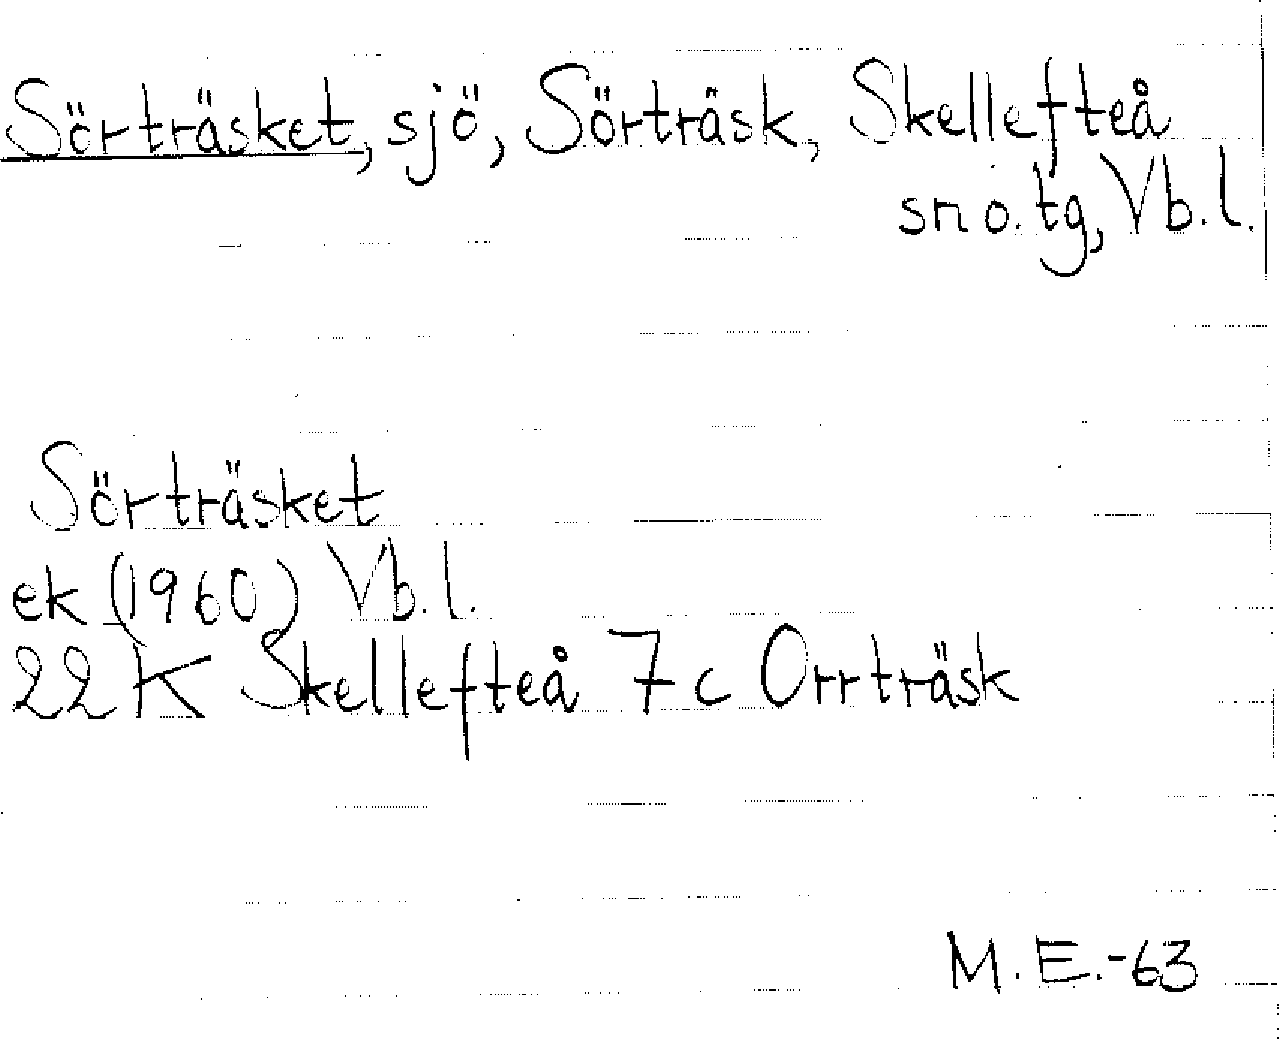 Sörträsket, sjö, Sörträsk, Skellefteå
sn o. tg, Vb. l.
Sörträsket
ek (1960) Vb. l.
22 K Skellefteå 7 c Orrträsk
M. E. -63